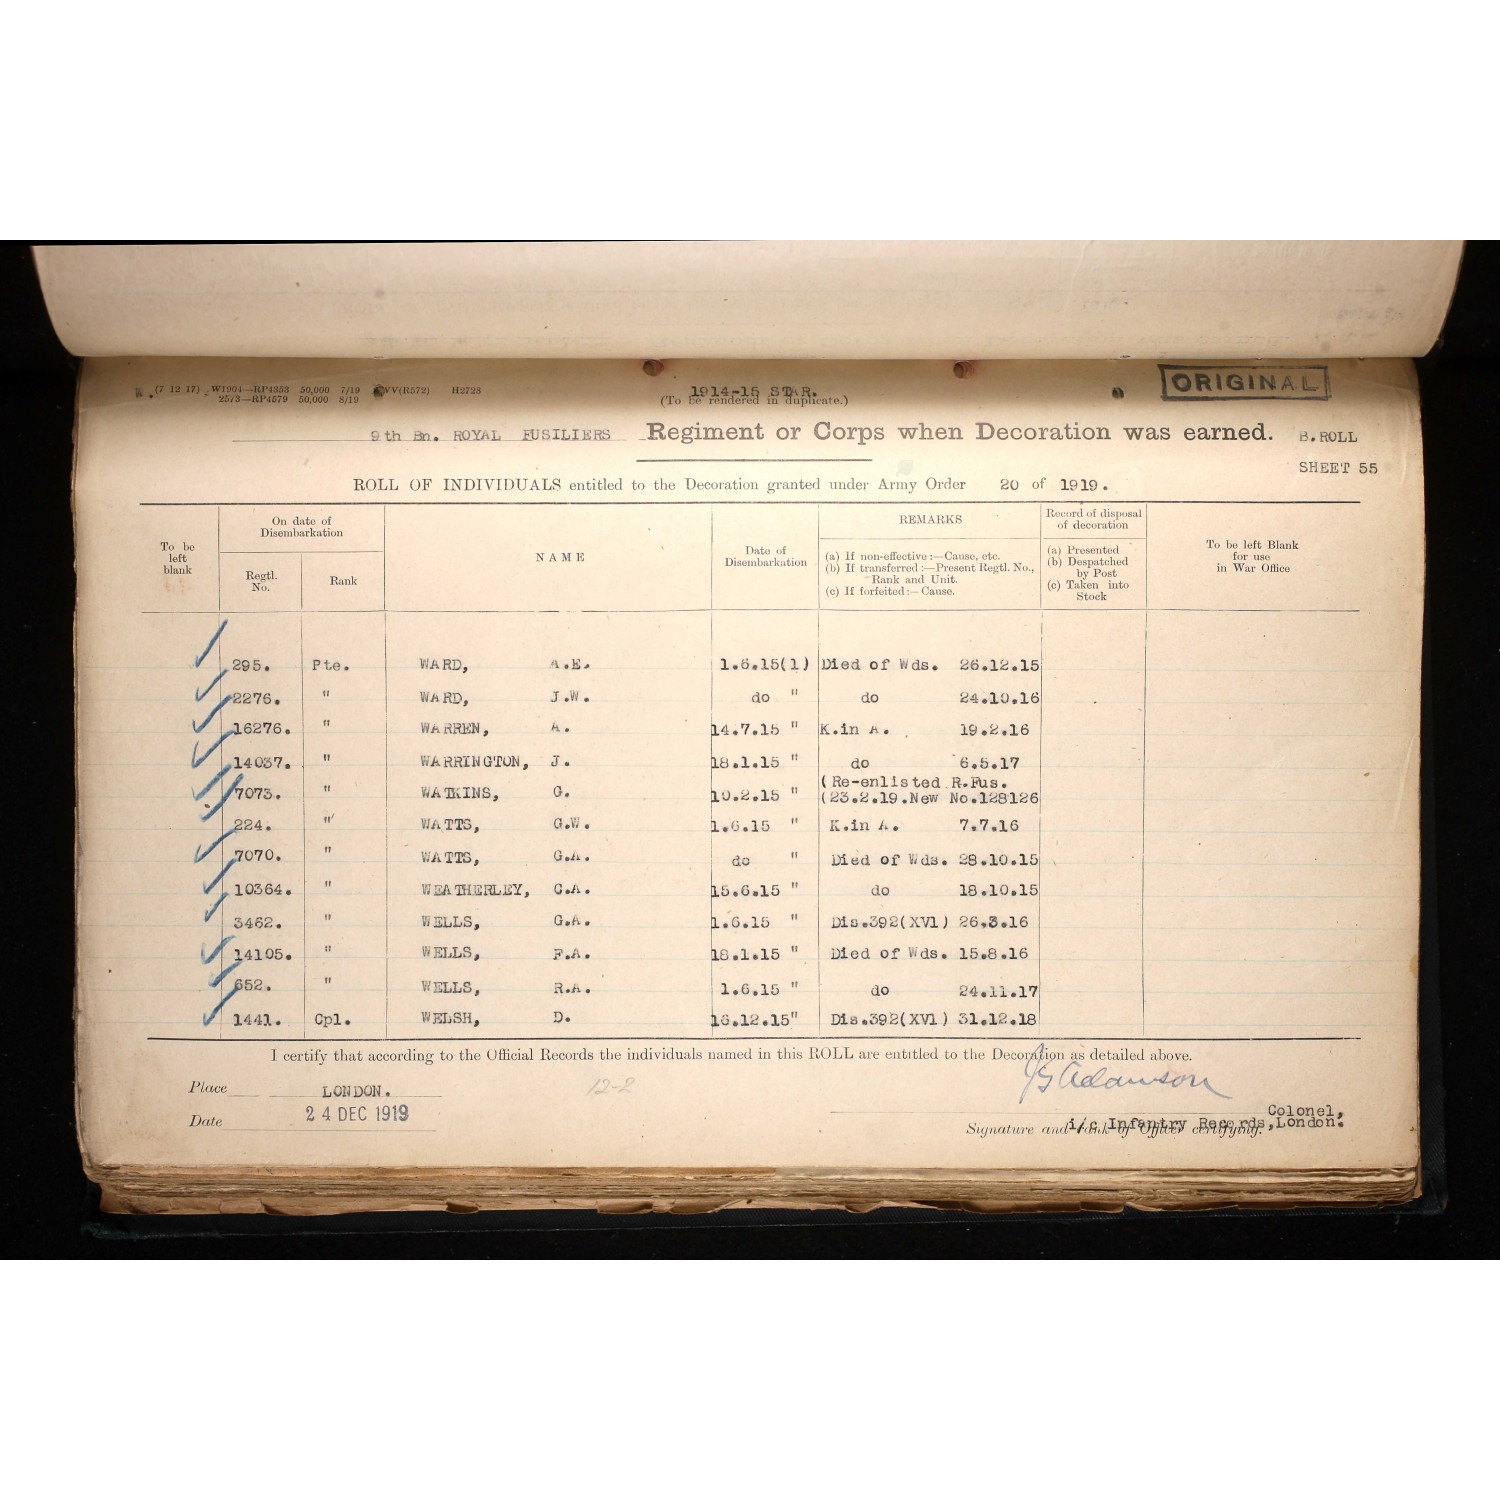 (7 12 17) W1904—RP4353 50,000 7/19 WV(R572) H2728
2573—RP4579 50,000 8/19
1914-15 STAR.
(To be rendered in duplicate.)
ORIGINAL
9th Bn. ROYAL FUSILIERS Regiment or Corps when Decoration was earned. B.ROLL
SHEET 55
ROLL OF INDIVIDUALS entitled to the Decoration granted under Army Order 20 of 1919.
To be left blank
On date of Disembarkation
Regtl. No.
Rank
NAME
Date of Disembarkation
REMARKS
(a) If non-effective :—Cause, etc.
(b) If transferred :—Present Regtl. No., Rank and Unit.
(c) If forfeited :—Cause.
Record of disposal of decoration
(a) Presented
(b) Despatched by Post
(c) Taken into Stock
To be left Blank for use in War Office
295. Pte. WARD, A.E. 1.6.15(1) Died of Wds. 26.12.15
2276. " WARD, J.W. do " do 24.10.16
16276. " WARREN, A. 14.7.15 " K.in A. 19.2.16
14037. " WARRINGTON, J. 18.1.15 " do 6.5.17
7073. " WATKINS, G. 10.2.15 " (Re-enlisted R.Fus.
(23.2.19.New No.128126
224. " WATTS, G.W. 1.6.15 " K.in A. 7.7.16
7070. " WATTS, G.A. do " Died of Wds. 28.10.15
10364. " WEATHERLEY, C.A. 15.6.15 " do 18.10.15
3462. " WELLS, G.A. 1.6.15 " Dis.392(XV1) 26.3.16
14105. " WELLS, F.A. 18.1.15 " Died of Wds. 15.8.16
652. " WELLS, R.A. 1.6.15 " do 24.11.17
1441. Cpl. WELSH, D. 16.12.15" Dis.392(XV1) 31.12.18
I certify that according to the Official Records the individuals named in this ROLL are entitled to the Decoration as detailed above.
Place LONDON.
12-2
Adamson
Date 24 DEC 1919
Colonel,
i/c Infantry Records, London.
Signature and rank of Officer certifying.